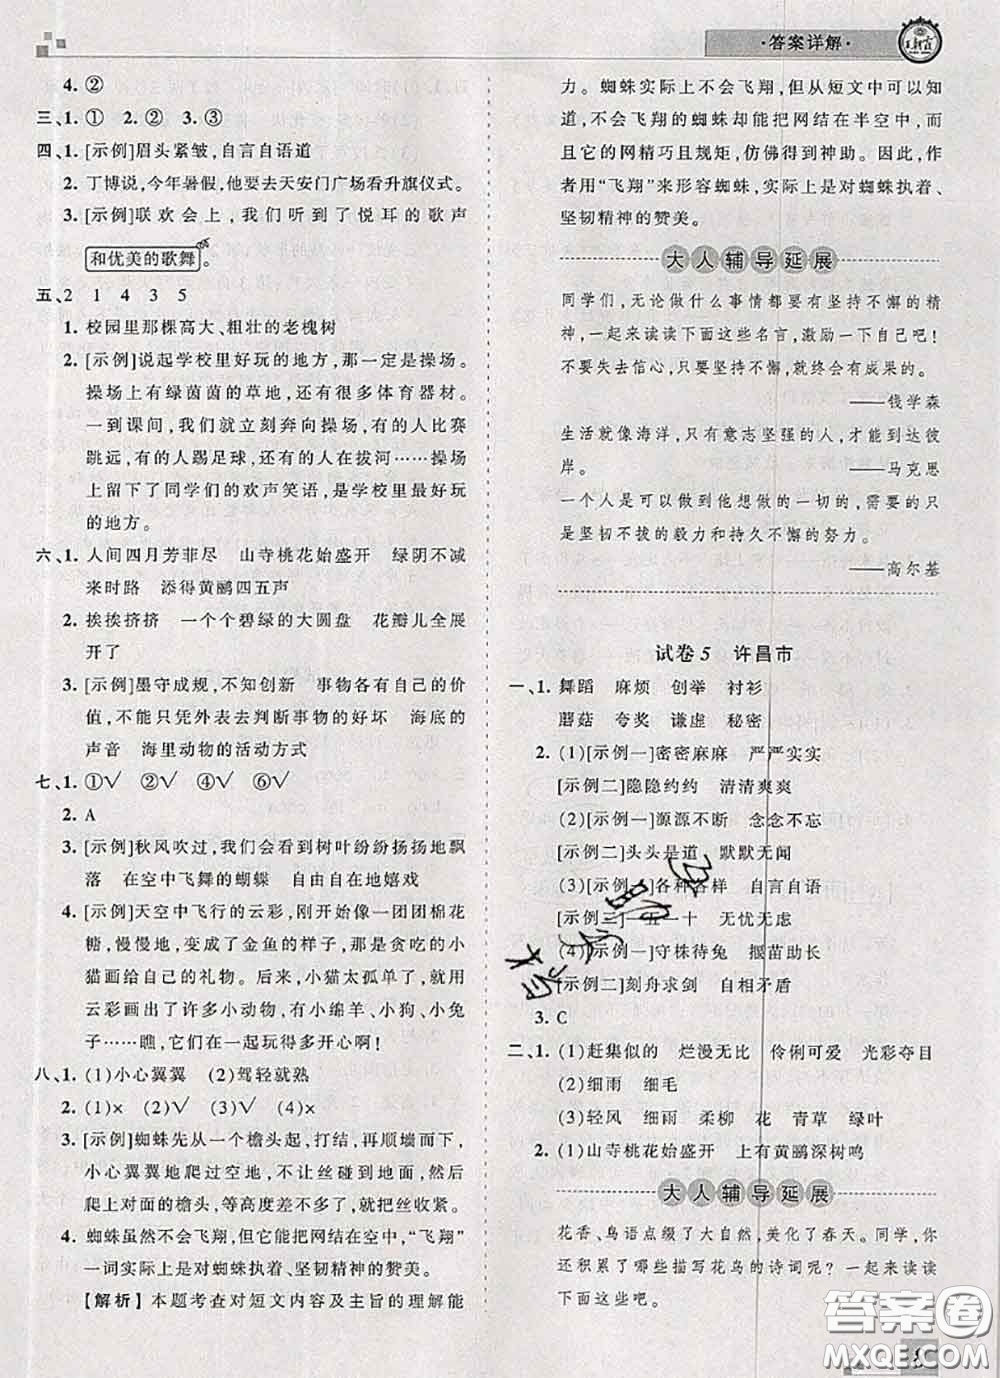 ·答案详解·
4. ②
三、1. ① 2. ② 3. ③
四、1. [示例]眉头紧皱，自言自语道
2. 丁博说，今年暑假，他要去天安门广场看升旗仪式。
3. [示例]联欢会上，我们听到了悦耳的歌声
和优美的歌舞。
五、2 1 4 3 5
1. 校园里那棵高大、粗壮的老槐树
2. [示例]说起学校里好玩的地方，那一定是操场。
操场上有绿茵茵的草地，还有许多体育器材。
一到课间，我们就立刻奔向操场，有的人比赛
跳远，有的人踢足球，还有人在拔河……操场
上留下了同学们的欢声笑语，是学校里最好玩
的地方。
六、1. 人间四月芳菲尽 山寺桃花始盛开 绿阴不减
来时路 添得黄鹂四五声
2. 挨挨挤挤 一个个碧绿的大圆盘 花瓣儿全展
开了
3. [示例]墨守成规，不敢创新 事物各有自己的价
值，不能只凭外表去判断事物的好坏 海底的
声音 海里动物的活动方式
七、1. ①√ ②√ ④√ ⑥√
2. A
3. [示例]秋风吹过，我们会看到树叶纷纷扬扬地飘
落 在空中飞舞的蝴蝶 自由自在地嬉戏
4. [示例]天空中飞行的云彩，刚开始像一团团棉花
糖，慢慢地，变成了金鱼的样子，那是贪吃的小
猫画给自己的礼物。后来，小猫太孤单了，就用
云彩画出了许多小动物，有小绵羊、小狗、小兔
子……瞧，它们在一起玩得多开心啊！
八、1. (1)小心翼翼 (2)驾轻就熟
2. (1)× (2)√ (3)√ (4)×
3. [示例]蜘蛛先从一个檐头起，打结，再顺墙而下，
小心翼翼地爬过空地，不让丝碰到地面，然后
爬上对面的檐头，等高度差不多了，就把丝收紧。
4. 蜘蛛虽然不会飞翔，但它能把网结在空中，“飞翔”
一词实际上是对蜘蛛执着、坚韧精神的赞美。
【解析】本题考查对短文内容及主旨的理解能
力。蜘蛛实际上不会飞翔，但从短文中可以知
道，不会飞翔的蜘蛛却能把网结在半空中，而
且它的网精巧且规矩，仿佛得到神助。因此，作
者用“飞翔”来形容蜘蛛，实际上是对蜘蛛执着、
坚韧精神的赞美。
大人辅导延展
同学们，无论做什么事情都要有坚持不懈的精
神，一起来读读下面这些名言，激励一下自己吧！
不要失去信心，只要坚持不懈，就终会有成果的。
——钱学森
生活就像海洋，只有意志坚强的人，才能到达彼
岸。 ——马克思
一个人是可以做到他想做的一切的，需要的只
是坚韧不拔的毅力和持久不懈的努力。
——高尔基
试卷5 许昌市
一、1. 舞蹈 麻烦 创举 衬衫
蘑菇 夸奖 谦虚 秘密
2. (1)[示例一]密密麻麻 严严实实
[示例二]隐隐约约 清清爽爽
(2)[示例一]源源不断 念念不忘
[示例二]头头是道 默默无闻
(3)[示例一]各种各样 自言自语
[示例二]一五一十 无忧无虑
(4)[示例一]守株待兔 揠苗助长
[示例二]刻舟求剑 自相矛盾
3. C
二、1. (1)赶集似的 烂漫无比 伶俐可爱 光彩夺目
(2)细雨 细毛
(3)轻风 细雨 柔柳 花 青草 绿叶
2. (1)山寺桃花始盛开 上有黄鹂深树鸣
大人辅导延展
花香、鸟语点缀了大自然，美化了春天。同学，你
还积累了哪些描写花鸟的诗词呢？一起来读读
下面这些吧。
答案卷
MXQE.COM